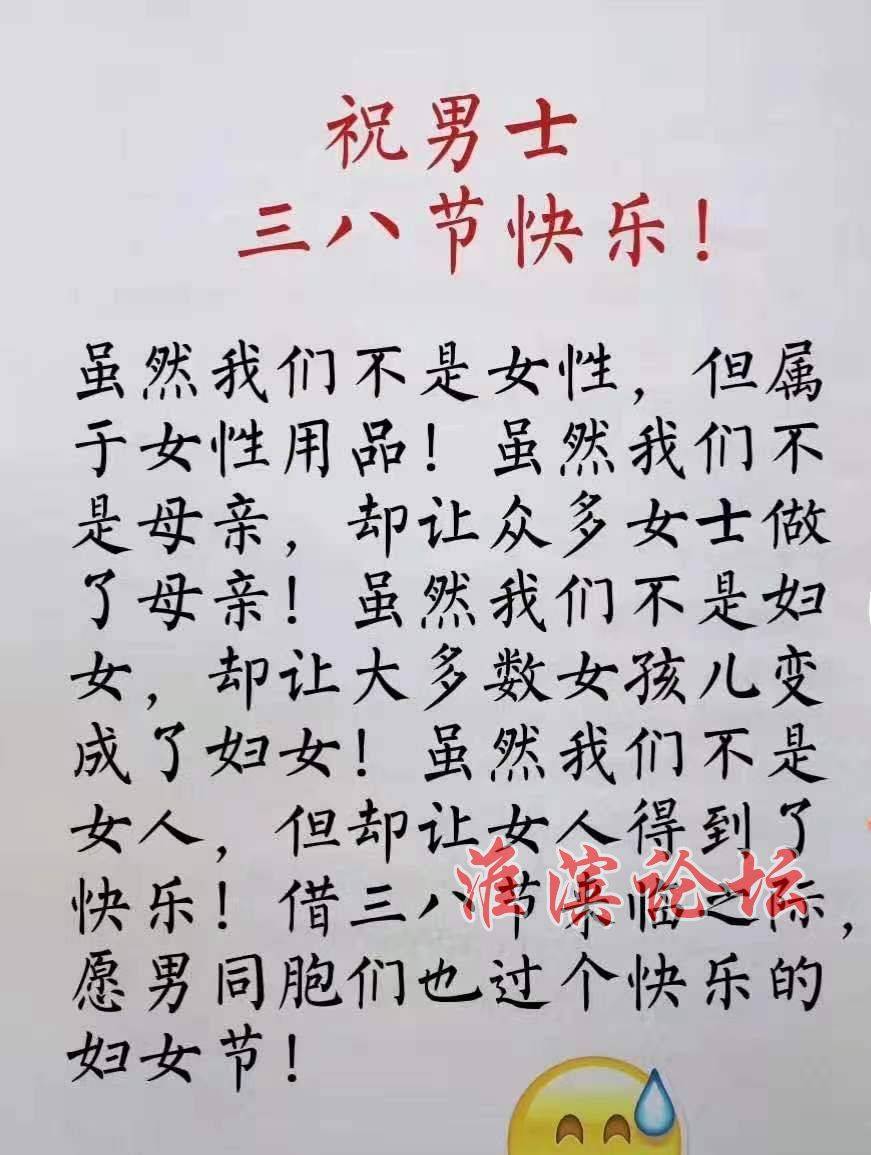 祝男士
三八节快乐！
虽然我们不是女性，但属
于女性用品！虽然我们不
是母亲，却让众多女士做
了母亲！虽然我们不是妇
女，却让大多数女孩儿变
成了妇女！虽然我们不是
女人，但却让女人得到了
快乐！借三八节来临之际，
愿男同胞们也过个快乐的
妇女节！
淮滨论坛